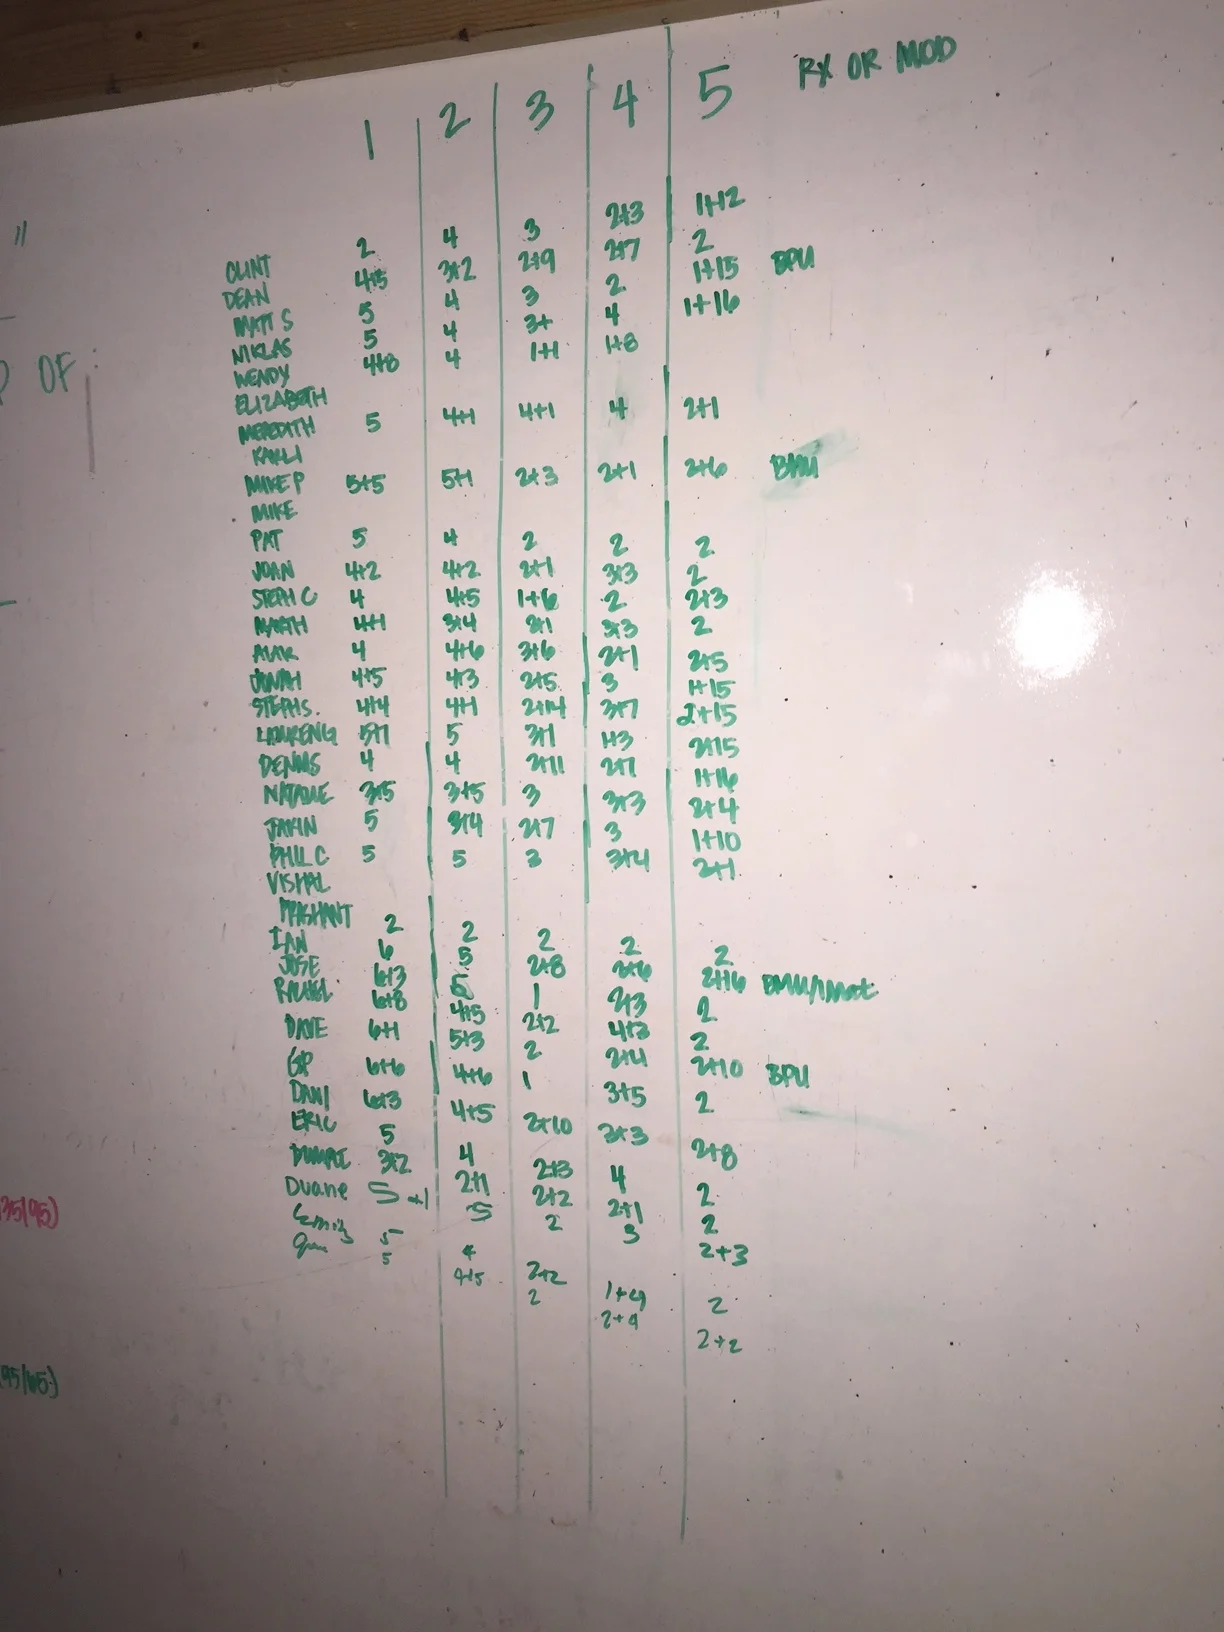 1 2 3 4 5 RX OR MOD
"
CLINT 2 4 3 2+3 1+12
DEAN 4+5 3+2 2+9 2+7 2
MATT S 5 4 3 2 1+15 BPU
NIKLAS 5 4 3+ 4 1+16
WENDY 4+8 4 1+1 1+8
OF
ELIZABETH
MEREDITH 5 4+1 4+1 4 2+1
KAHLI
MIKE P 5+5 5+1 2+3 2+1 2+6 BMU
MIKE
PAT 5 4 2 2 2
JOAN 4+2 4+2 2+1 3+3 2
STEPH C 4 4+5 1+6 2 2+3
4+1 3+4 3+1 3+3 2
4 4+6 3+6 2+1 2+5
JONAH 4+5 4+3 2+5 3 1+15
STEPH S. 4+4 4+1 2+14 3+7 2+15
LAWRENG 5+1 5 3+1 1+3 2+15
DENNIS 4 4 2+11 2+7 1+16
NATALIE 3+5 3+5 3 3+3 2+4
JAKIN 5 3+4 2+7 3 1+10
PHIL C 5 5 3 3+4 2+1
VISHAL
PRASHANT 2 2 2 2 2
IAN 6 5 2+8 2+6 2+16
JOSE 6+3 5 1 2+3 2
RACHEL 6+8 4+5 2+2 4+3 2
DAVE 6+1 5+3 2 2+4 2+10 BPU
GP 6+6 4+6 1 3+5 2
DANI 6+3 4+5 2+10 3+3 2+8
ERIC 5 4 2+3 4 2
3+2 2+1 2+2 2+1 2
Duane 5+1 5 2 3 2+3
Emily 5 4 2+2 1+4 2
5 4+5 2 2+4 2+2
35/95)
95/65)